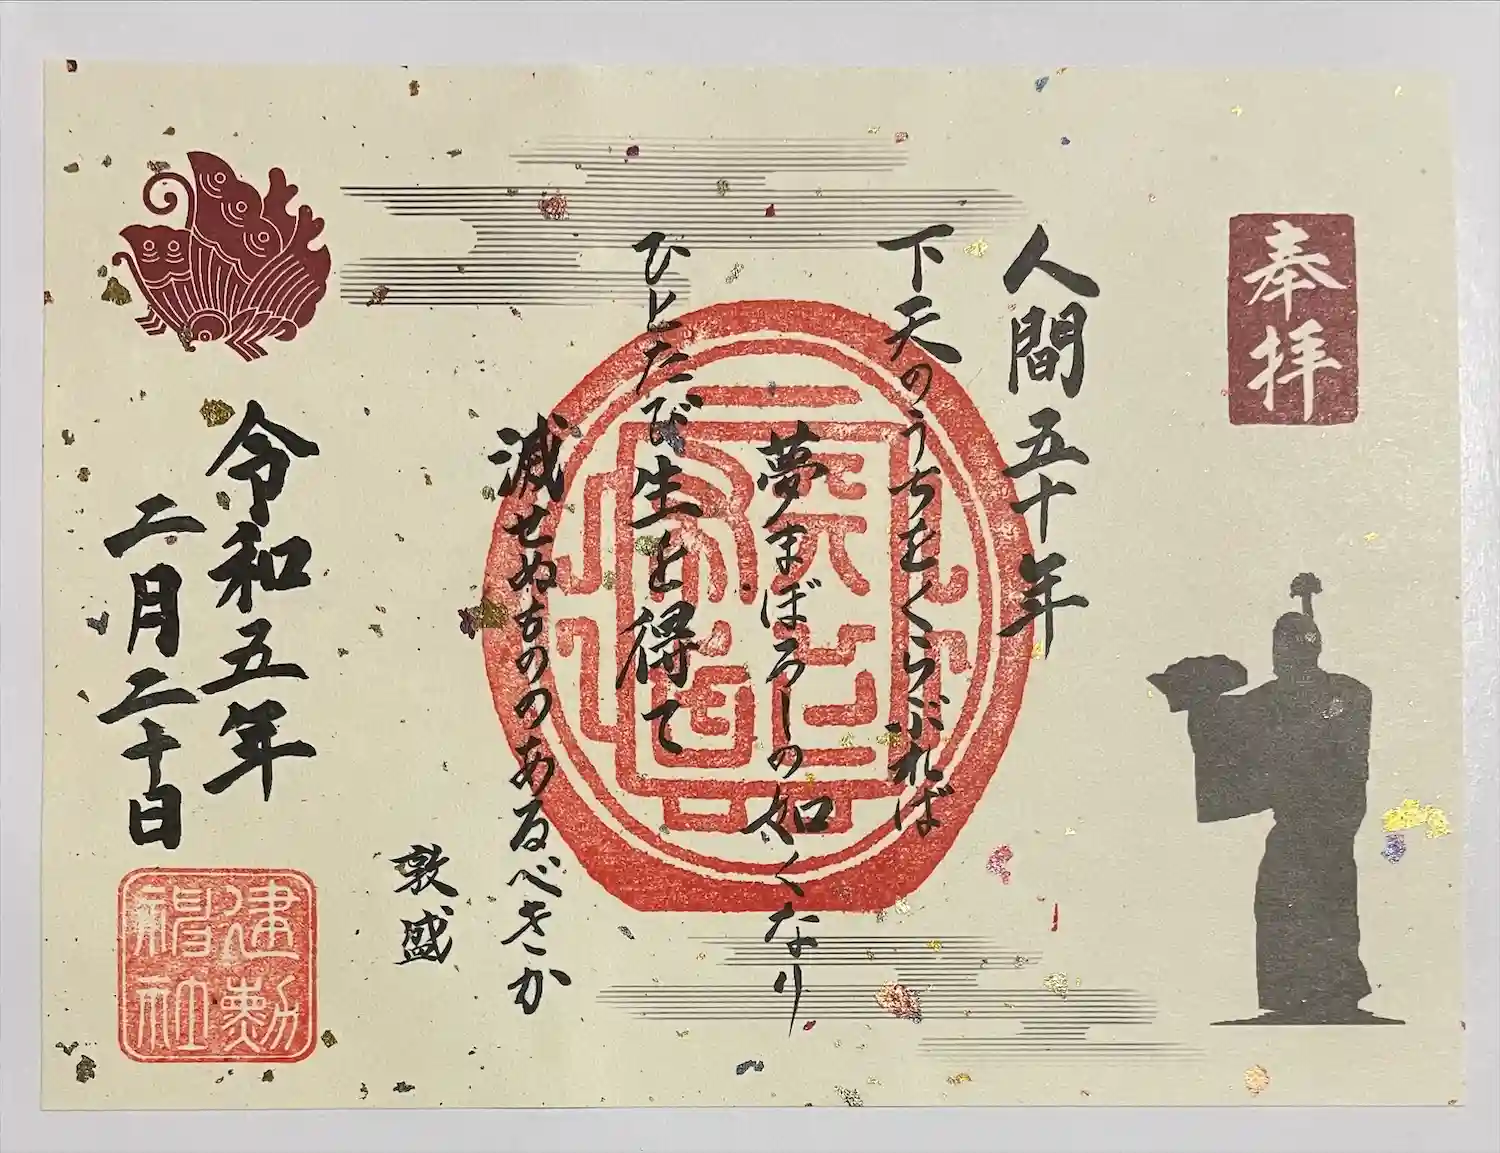 奉拝
人間五十年
下天のうちをくらぶれば
夢まぼろしの如くなり
ひとたび生を得て
滅せぬもののあるべきか
敦盛
令和五年
二月二十日
建勲
神社